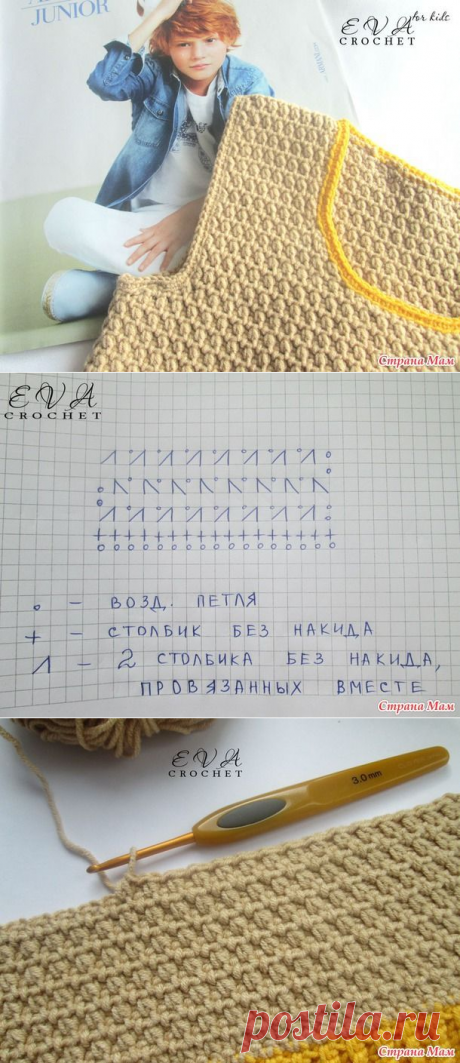 JUNIOR
EVA for kids
CROCHET
Страна Мам
EVA
CROCHET
o - ВОЗД. ПЕТЛЯ
+ - СТОЛБИК БЕЗ НАКИДА
Λ - 2 СТОЛБИКА БЕЗ НАКИДА,
ПРОВЯЗАННЫХ ВМЕСТЕ
Страна Мам
EVA
CROCHET
3.0mm
postila.ru
Страна Мам